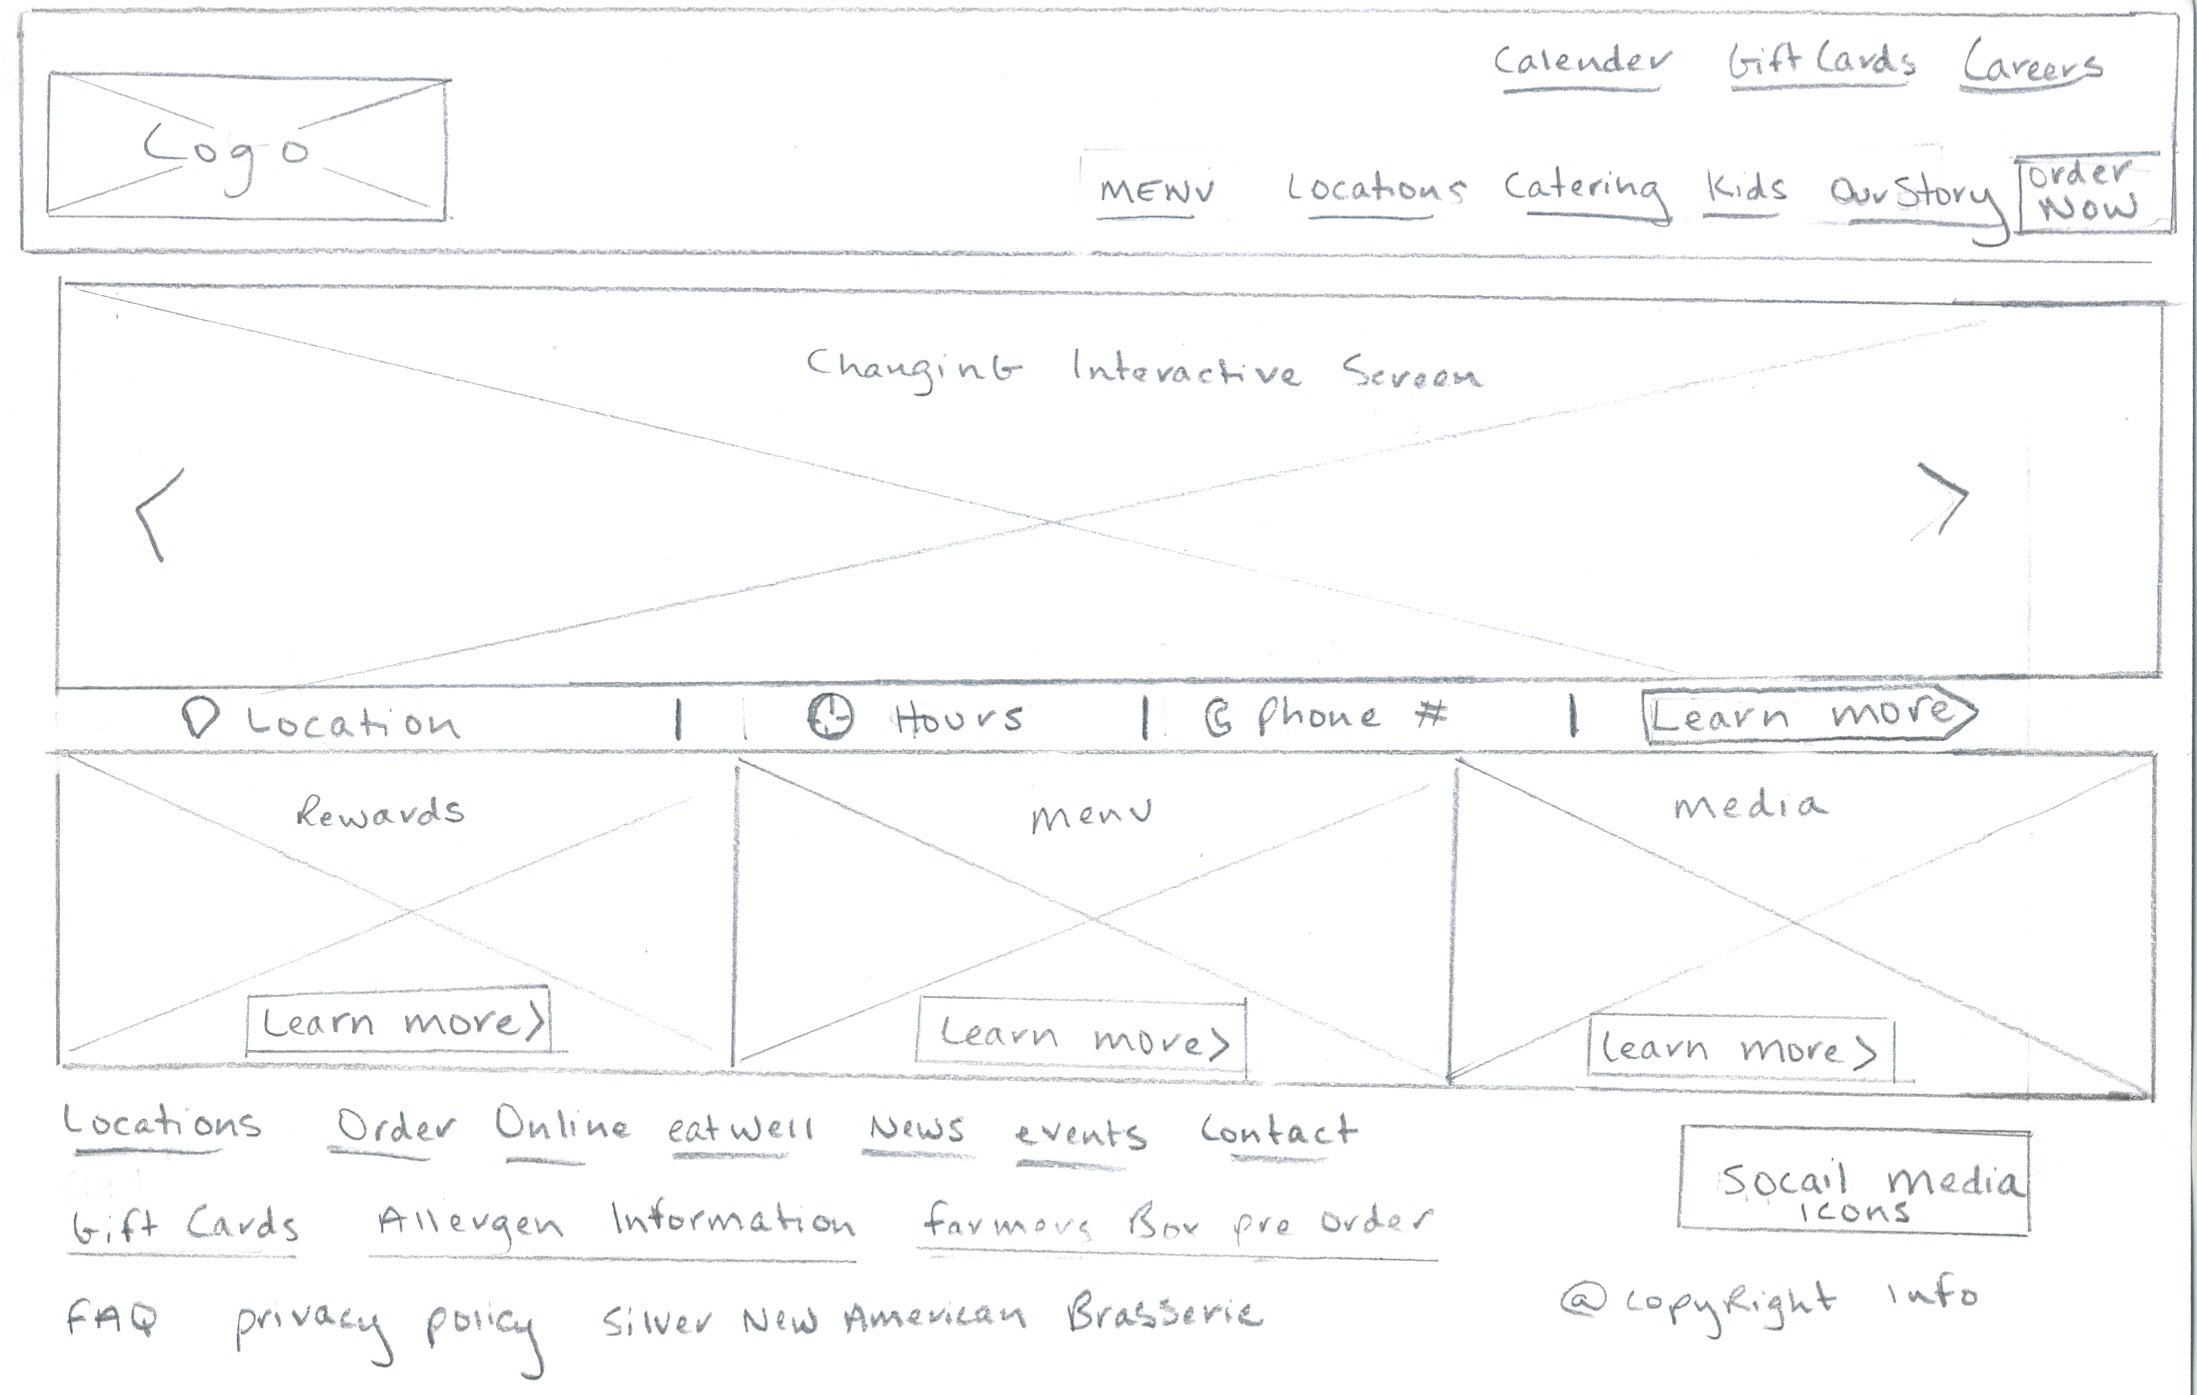 Calender Gift Cards Careers
Logo
MENU Locations Catering Kids Our Story Order Now
Changing Interactive Screen
< >
Location | Hours | Phone # | Learn more
Rewards Menu Media
Learn more> Learn more> Learn more>
Locations Order Online eatwell News events Contact
Socail media
icons
Gift Cards Allergen Information farmers Box pre order
@ copyRight Info
FAQ privacy policy Silver New American Brasserie